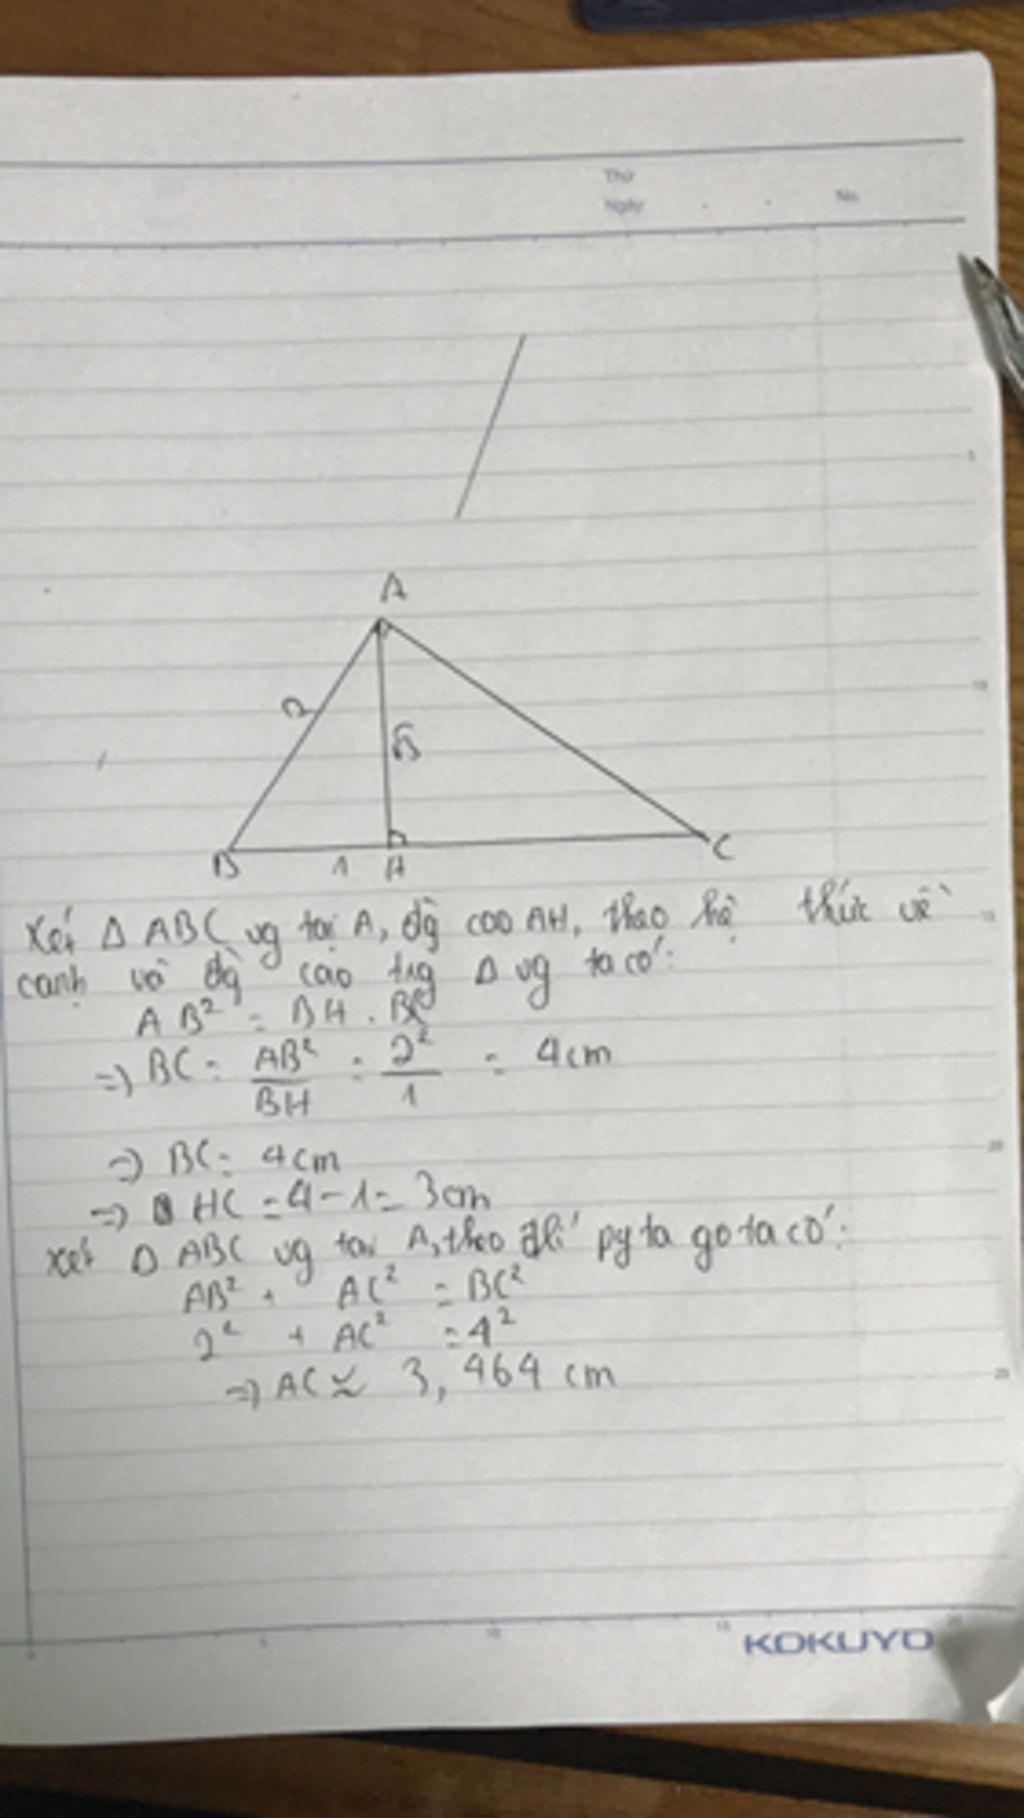 Thứ
Ngày
No.
5
10
A
2
√3
B
1
H
C
Xét Δ ABC vg tại A, đg cao AH, theo hệ thức về
cạnh và đg cao trg Δ vg ta có:
AB² = BH . BC
=> BC = AB²/BH = 2²/1 = 4cm
=> BC = 4cm
=> HC = 4 - 1 = 3cm
Xét Δ ABC vg tại A, theo đlí pytago ta có:
AB² + AC² = BC²
2² + AC² = 4²
=> AC ≈ 3,464 cm
15
20
25
5
10
15
KOKUYO